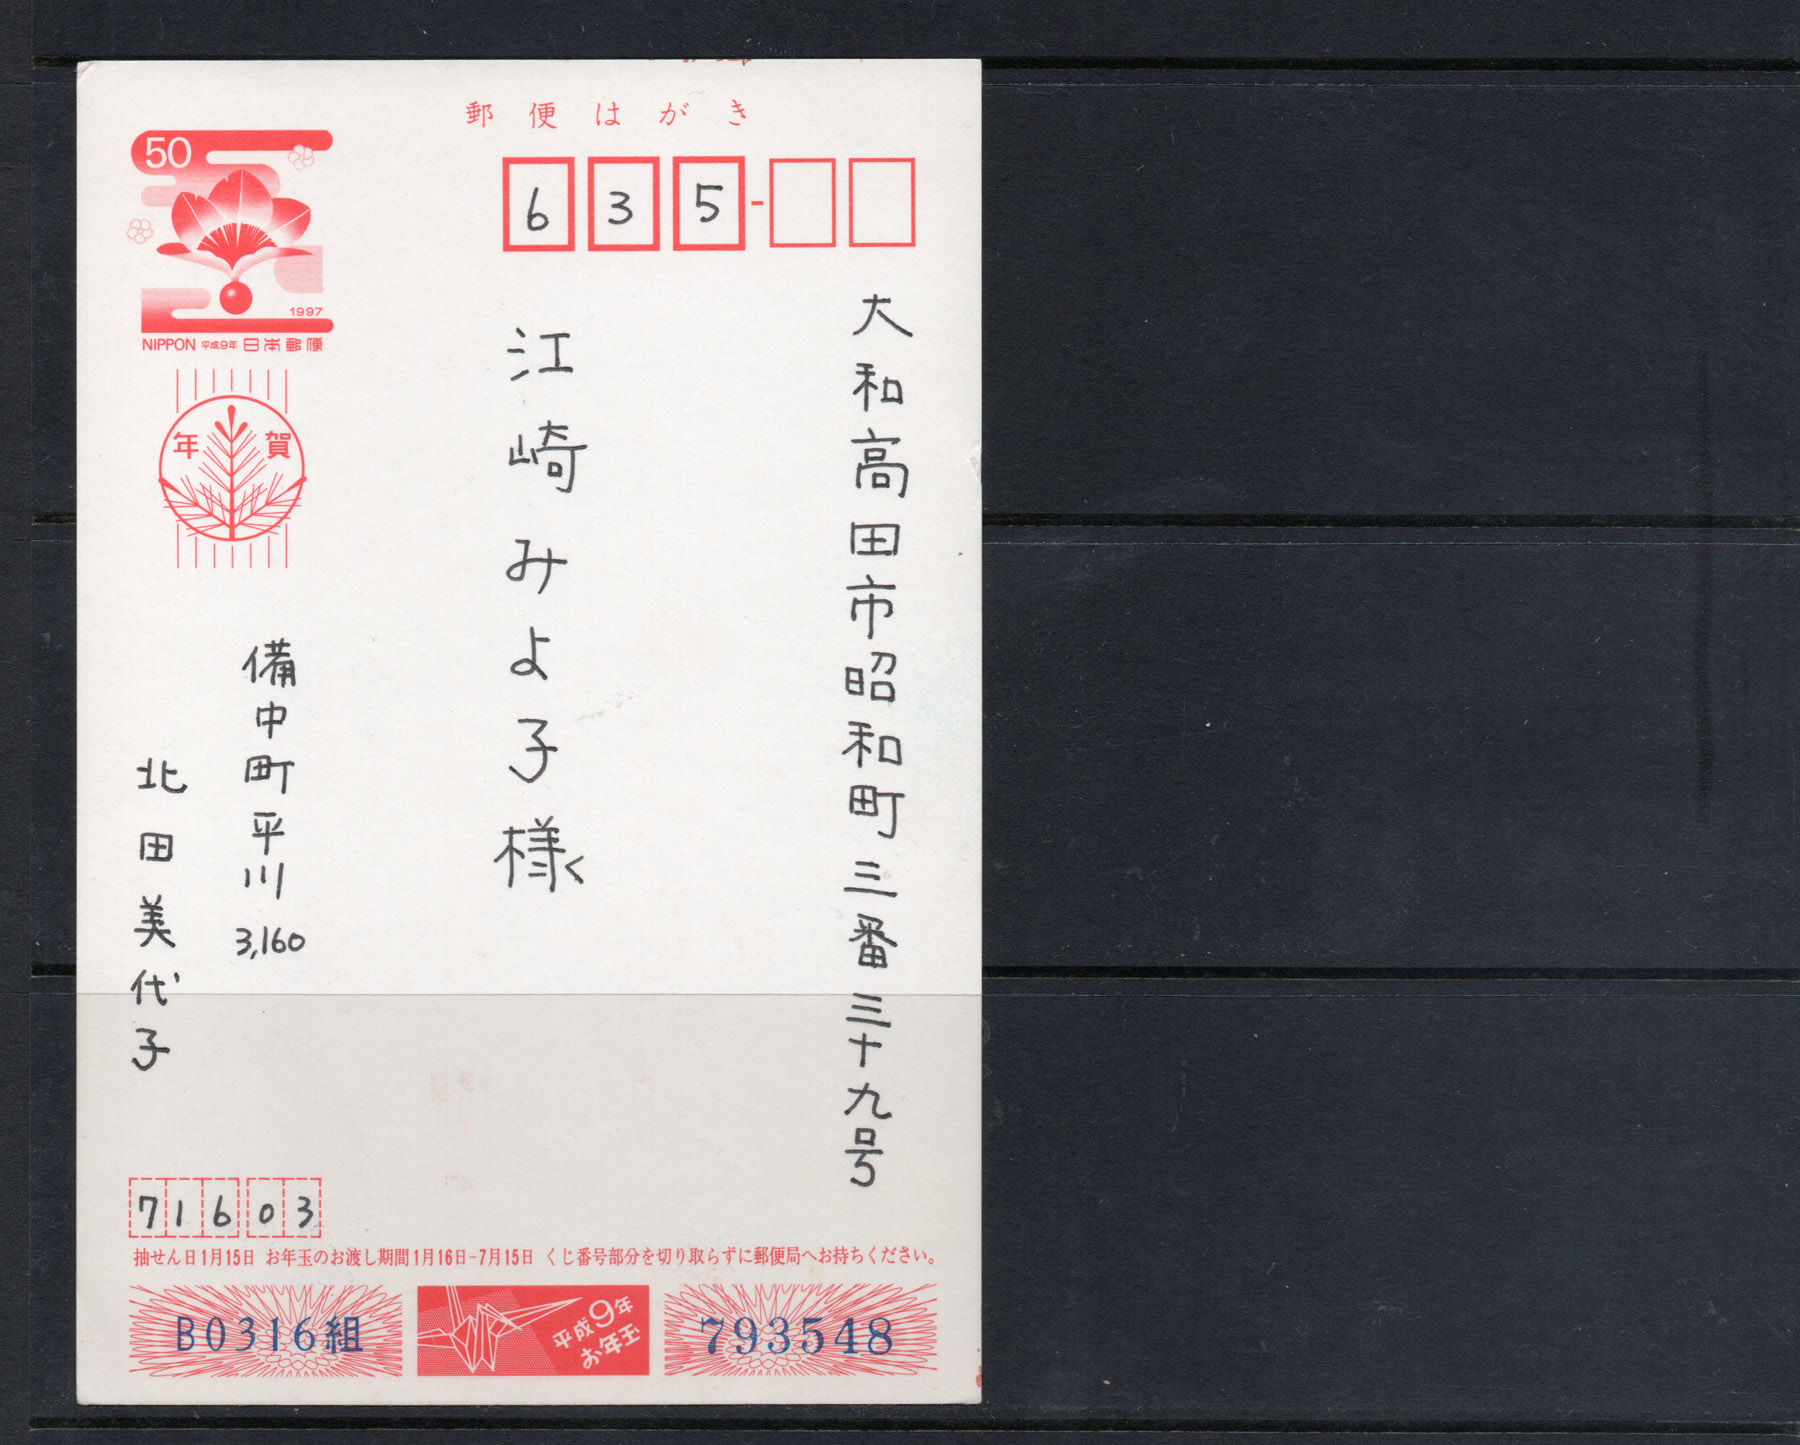 郵便はがき
50
1997
NIPPON 平成9年 日本郵便
年賀
635-
大和高田市昭和町三番三十九号
江崎みよ子様
備中町平川3,160
北田美代子
71603
抽せん日1月15日 お年玉のお渡し期間1月16日-7月15日 くじ番号部分を切り取らずに郵便局へお持ちください。
B0316組
平成9年
お年玉
793548